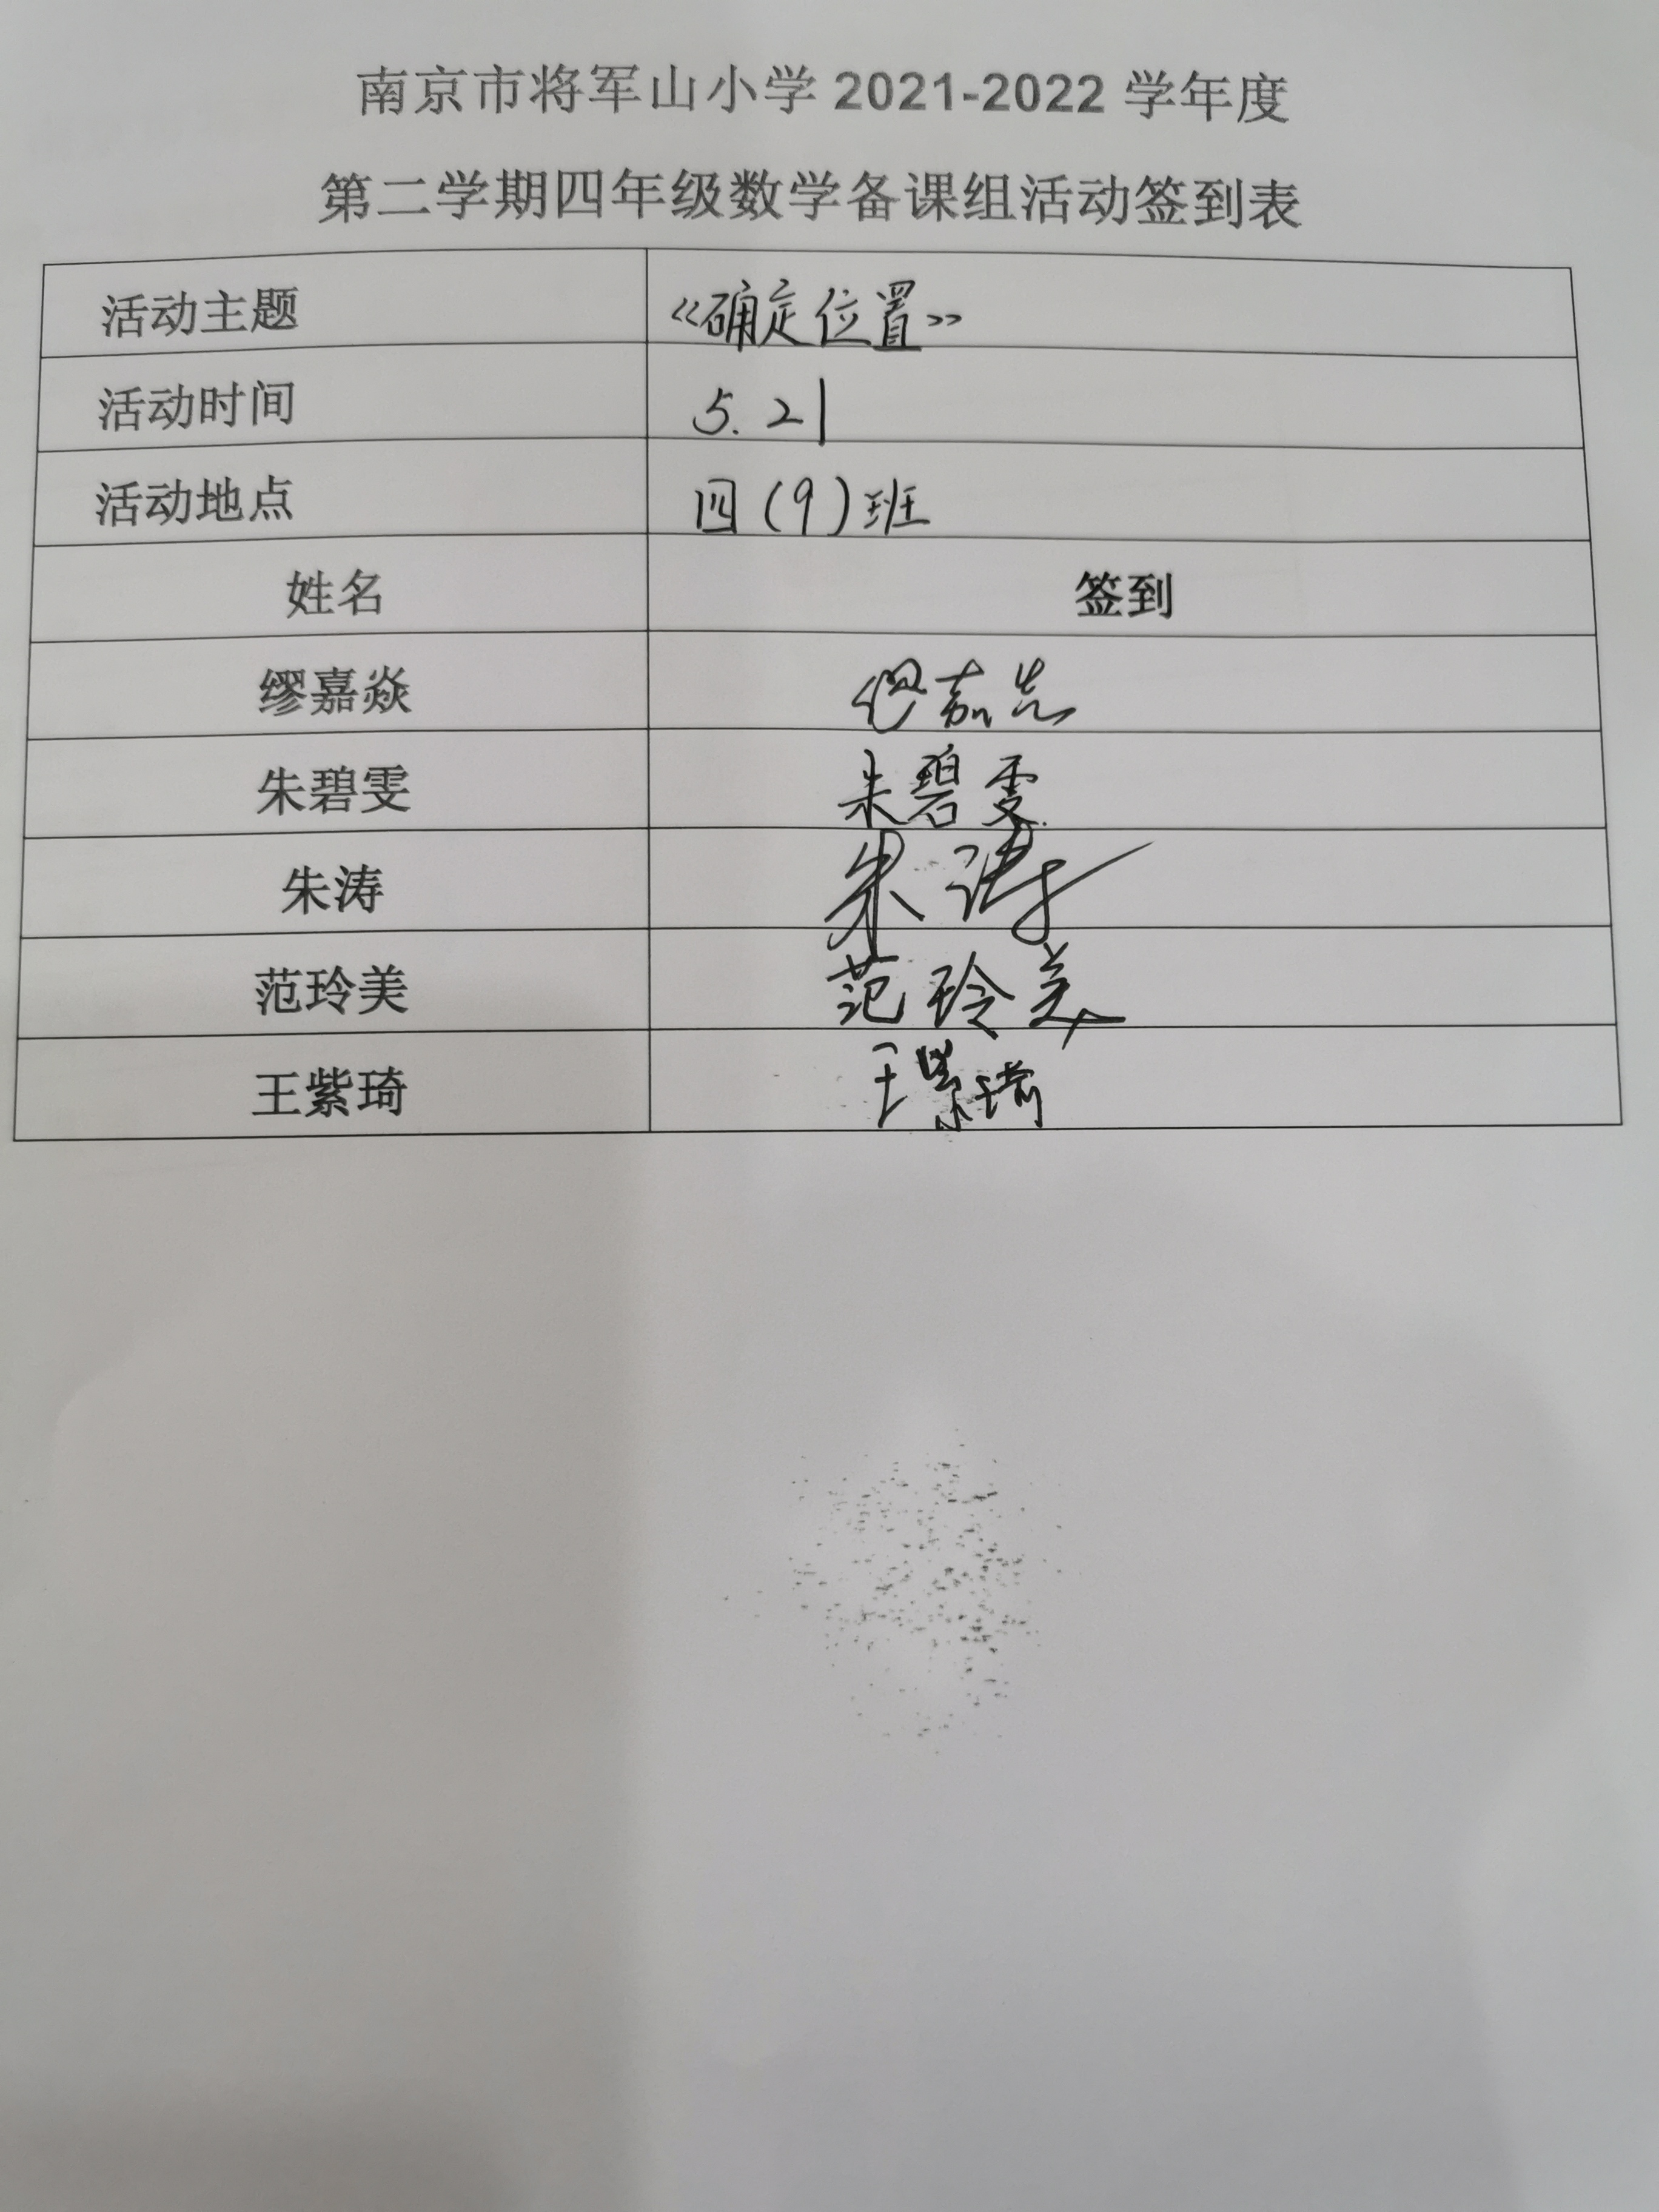 南京市将军山小学 2021-2022 学年度
第二学期四年级数学备课组活动签到表
活动主题 《确定位置》
活动时间 5.21
活动地点 四(9)班
姓名 签到
缪嘉焱 缪嘉焱
朱碧雯 朱碧雯
朱涛 朱涛
范玲美 范玲美
王紫琦 王紫琦